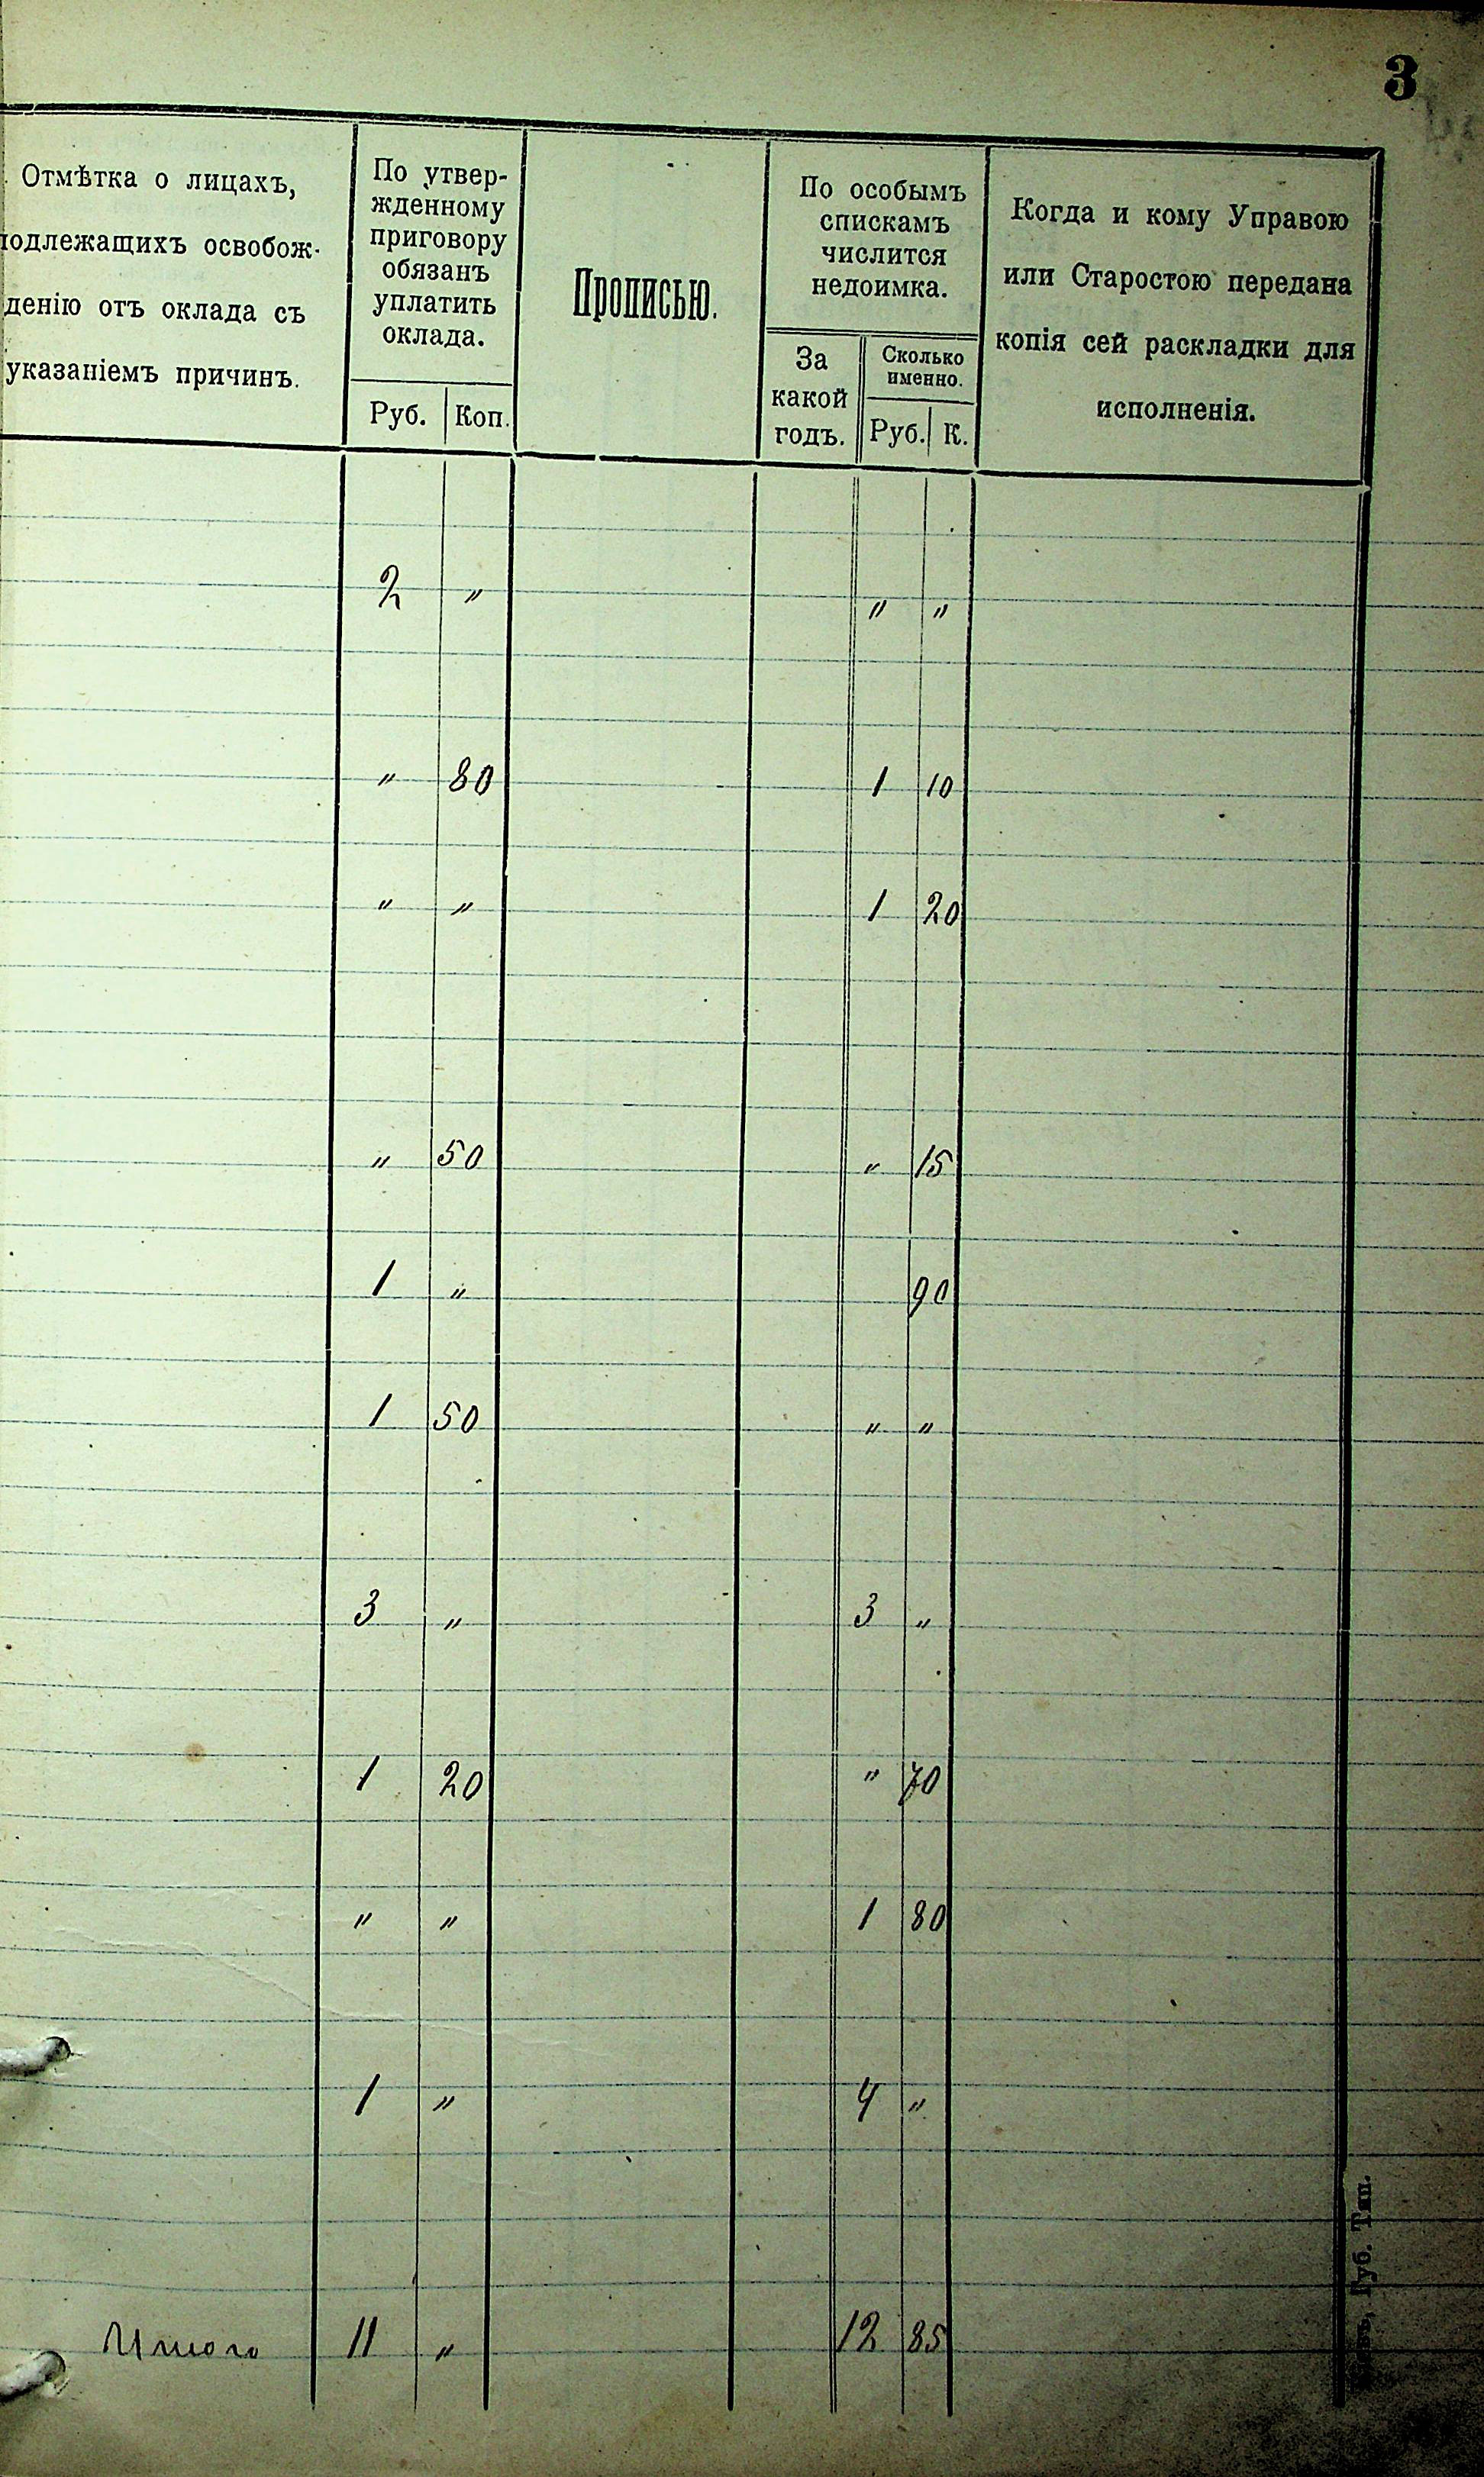 3
Отмѣтка о лицахъ,
подлежащихъ освобож-
денію отъ оклада съ
указаніемъ причинъ.
По утвер-
жденному
приговору
обязанъ
уплатить
оклада.
Руб. Коп.
Прописью.
По особымъ
спискамъ
числится
недоимка.
За
какой
годъ.
Сколько
именно.
Руб. К.
Когда и кому Управою
или Старостою передана
копія сей раскладки для
исполненія.
2 " " "
" 80 1 10
" " 1 20
" 50 " 15
1 " 90
1 50 " "
3 " 3 "
1 20 " 70
" " 1 80
1 " 4 "
Итого 11 " 12 85
Губ. Тип.